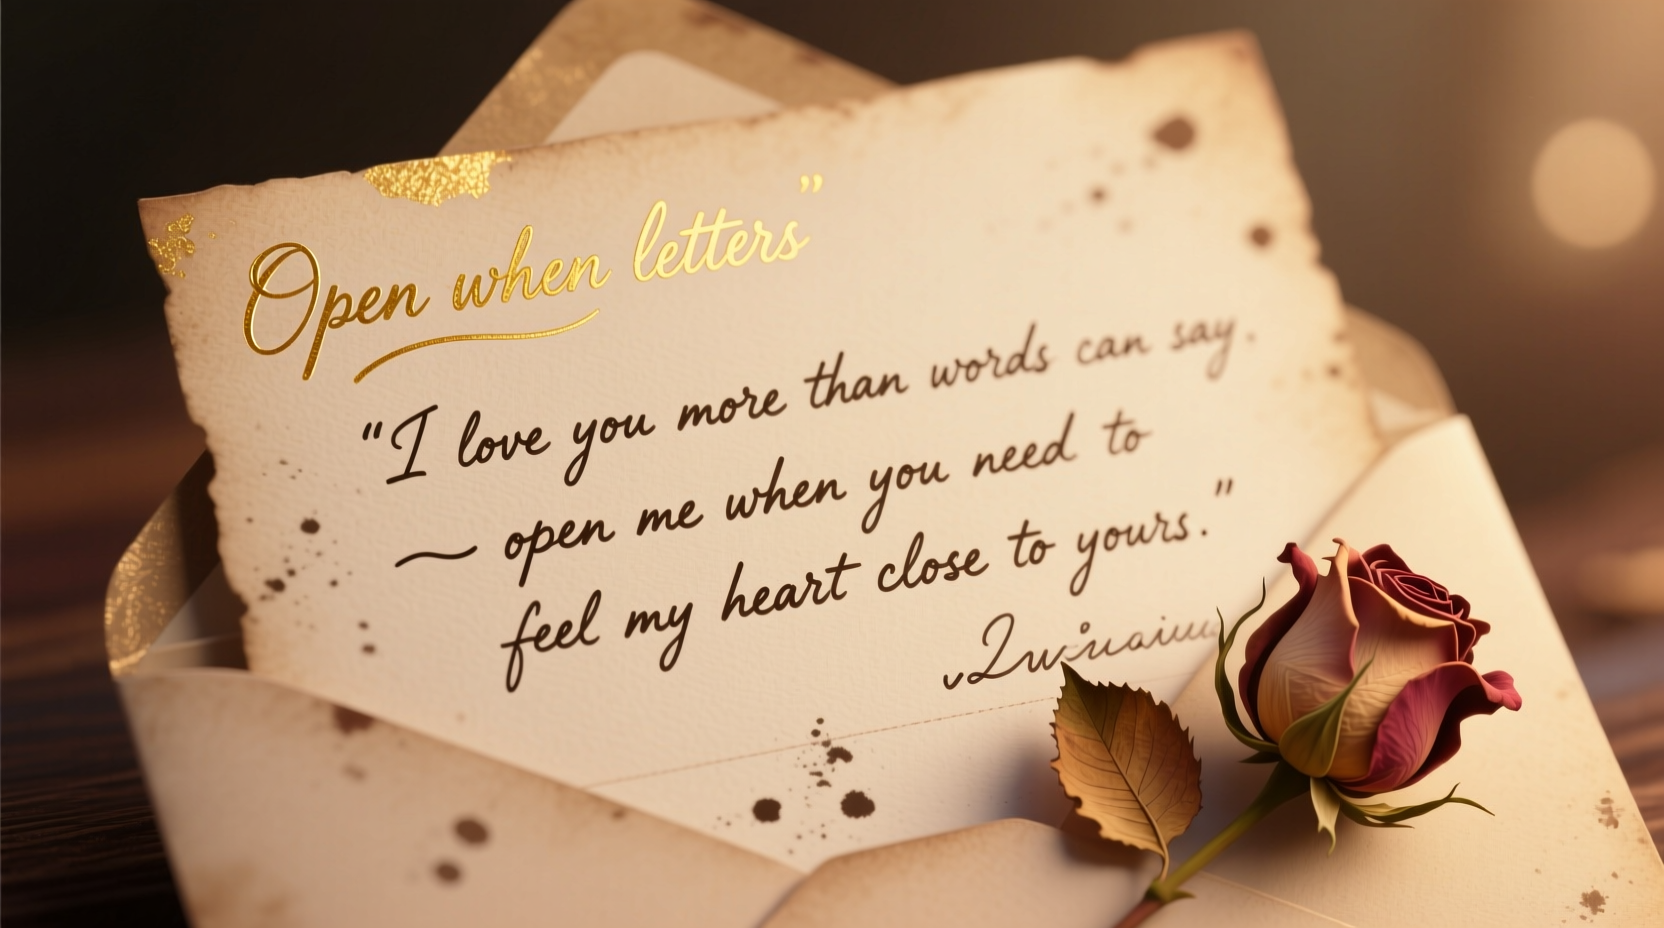 Open when letters”
“I love you more than words can say.
— open me when you need to
feel my heart close to yours.”